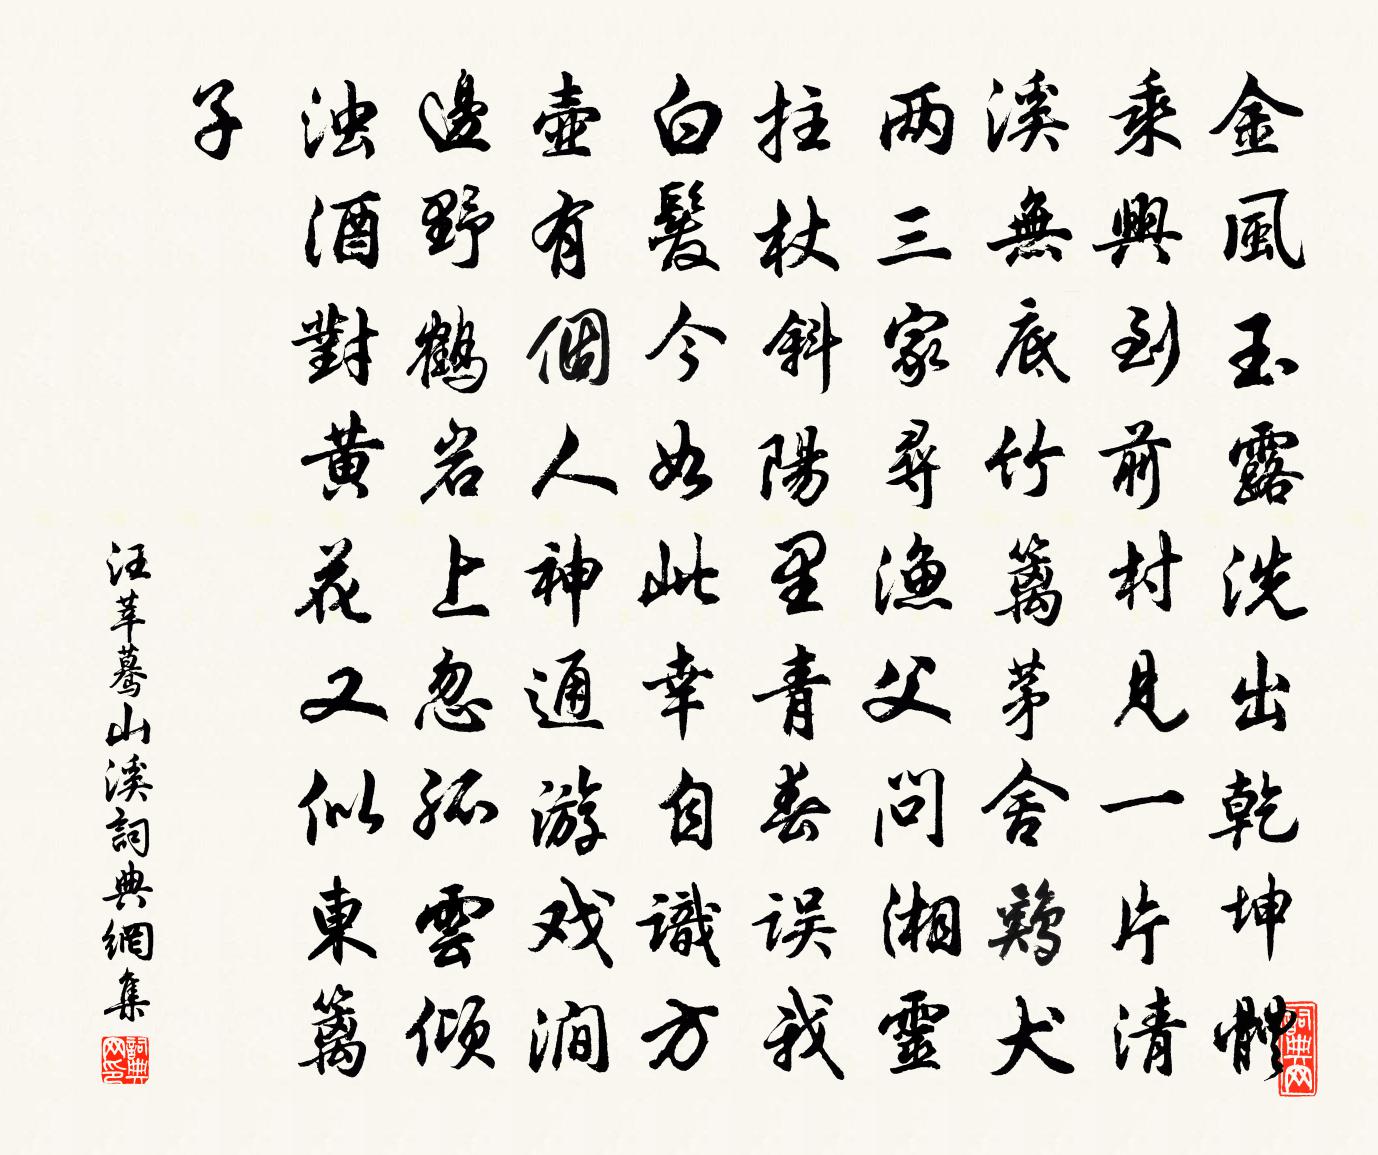 金風玉露洗出乾坤體
乘興到前村見一片清
溪無底竹篱茅舍鷄犬
两三家尋渔父問湘靈
拄杖斜陽里青春误我
白髮今如此幸自識方
壺有個人神通游戏澗
邊野鶴岩上忽孤雲倾
浊酒對黄花又似東篱
子
汪莘驀山溪詞典網集
詞典网
詞典网印